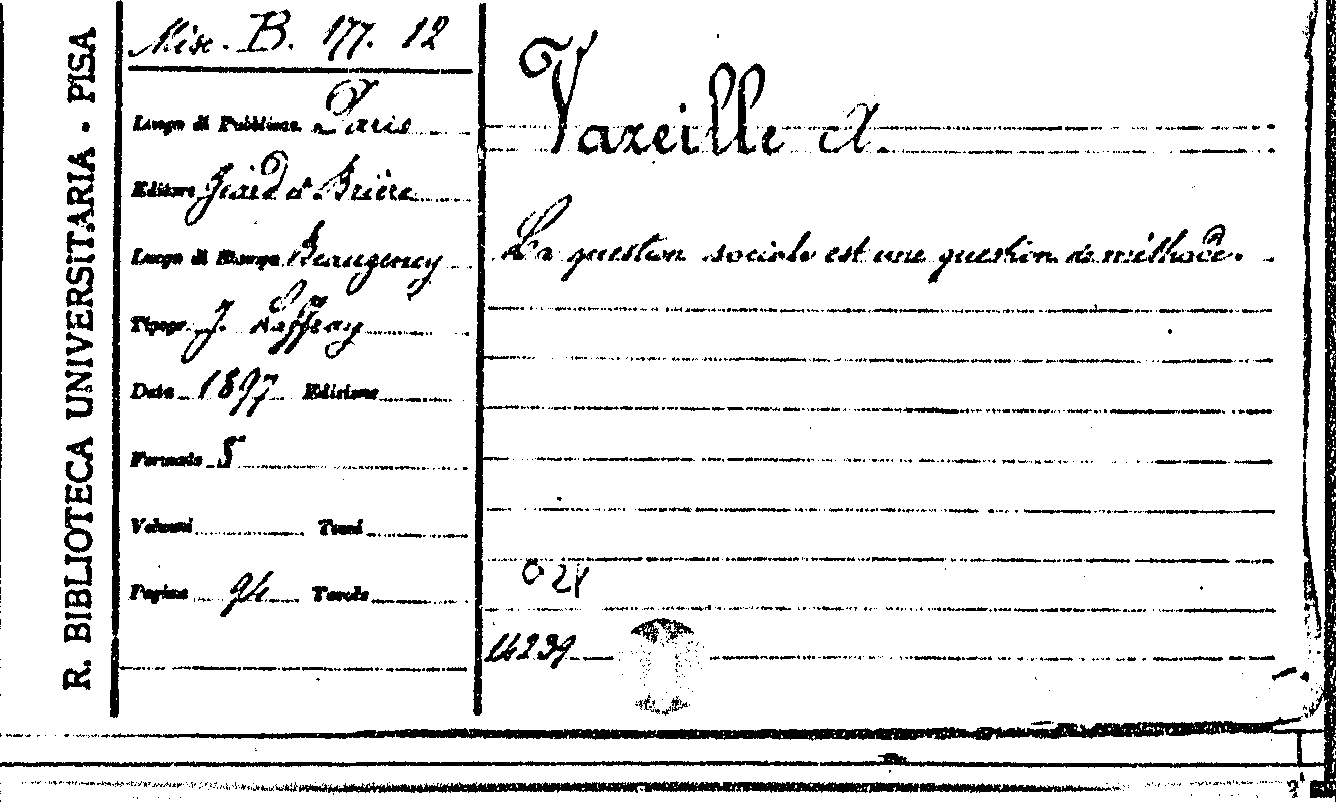 R. BIBLIOTECA UNIVERSITARIA - PISA
Misc. B. 177. 12
Luogo di Pubblicaz. Paris
Editore Giard et Brière
Luogo di Stampa Beaugency
Tipogr. J. Laffray
Data 1897 Edizione
Formato 8
Volumi Tomi
Pagine 94 Tavole
Vazeille A.
La question sociale est une question de méthode.
O 24
14239